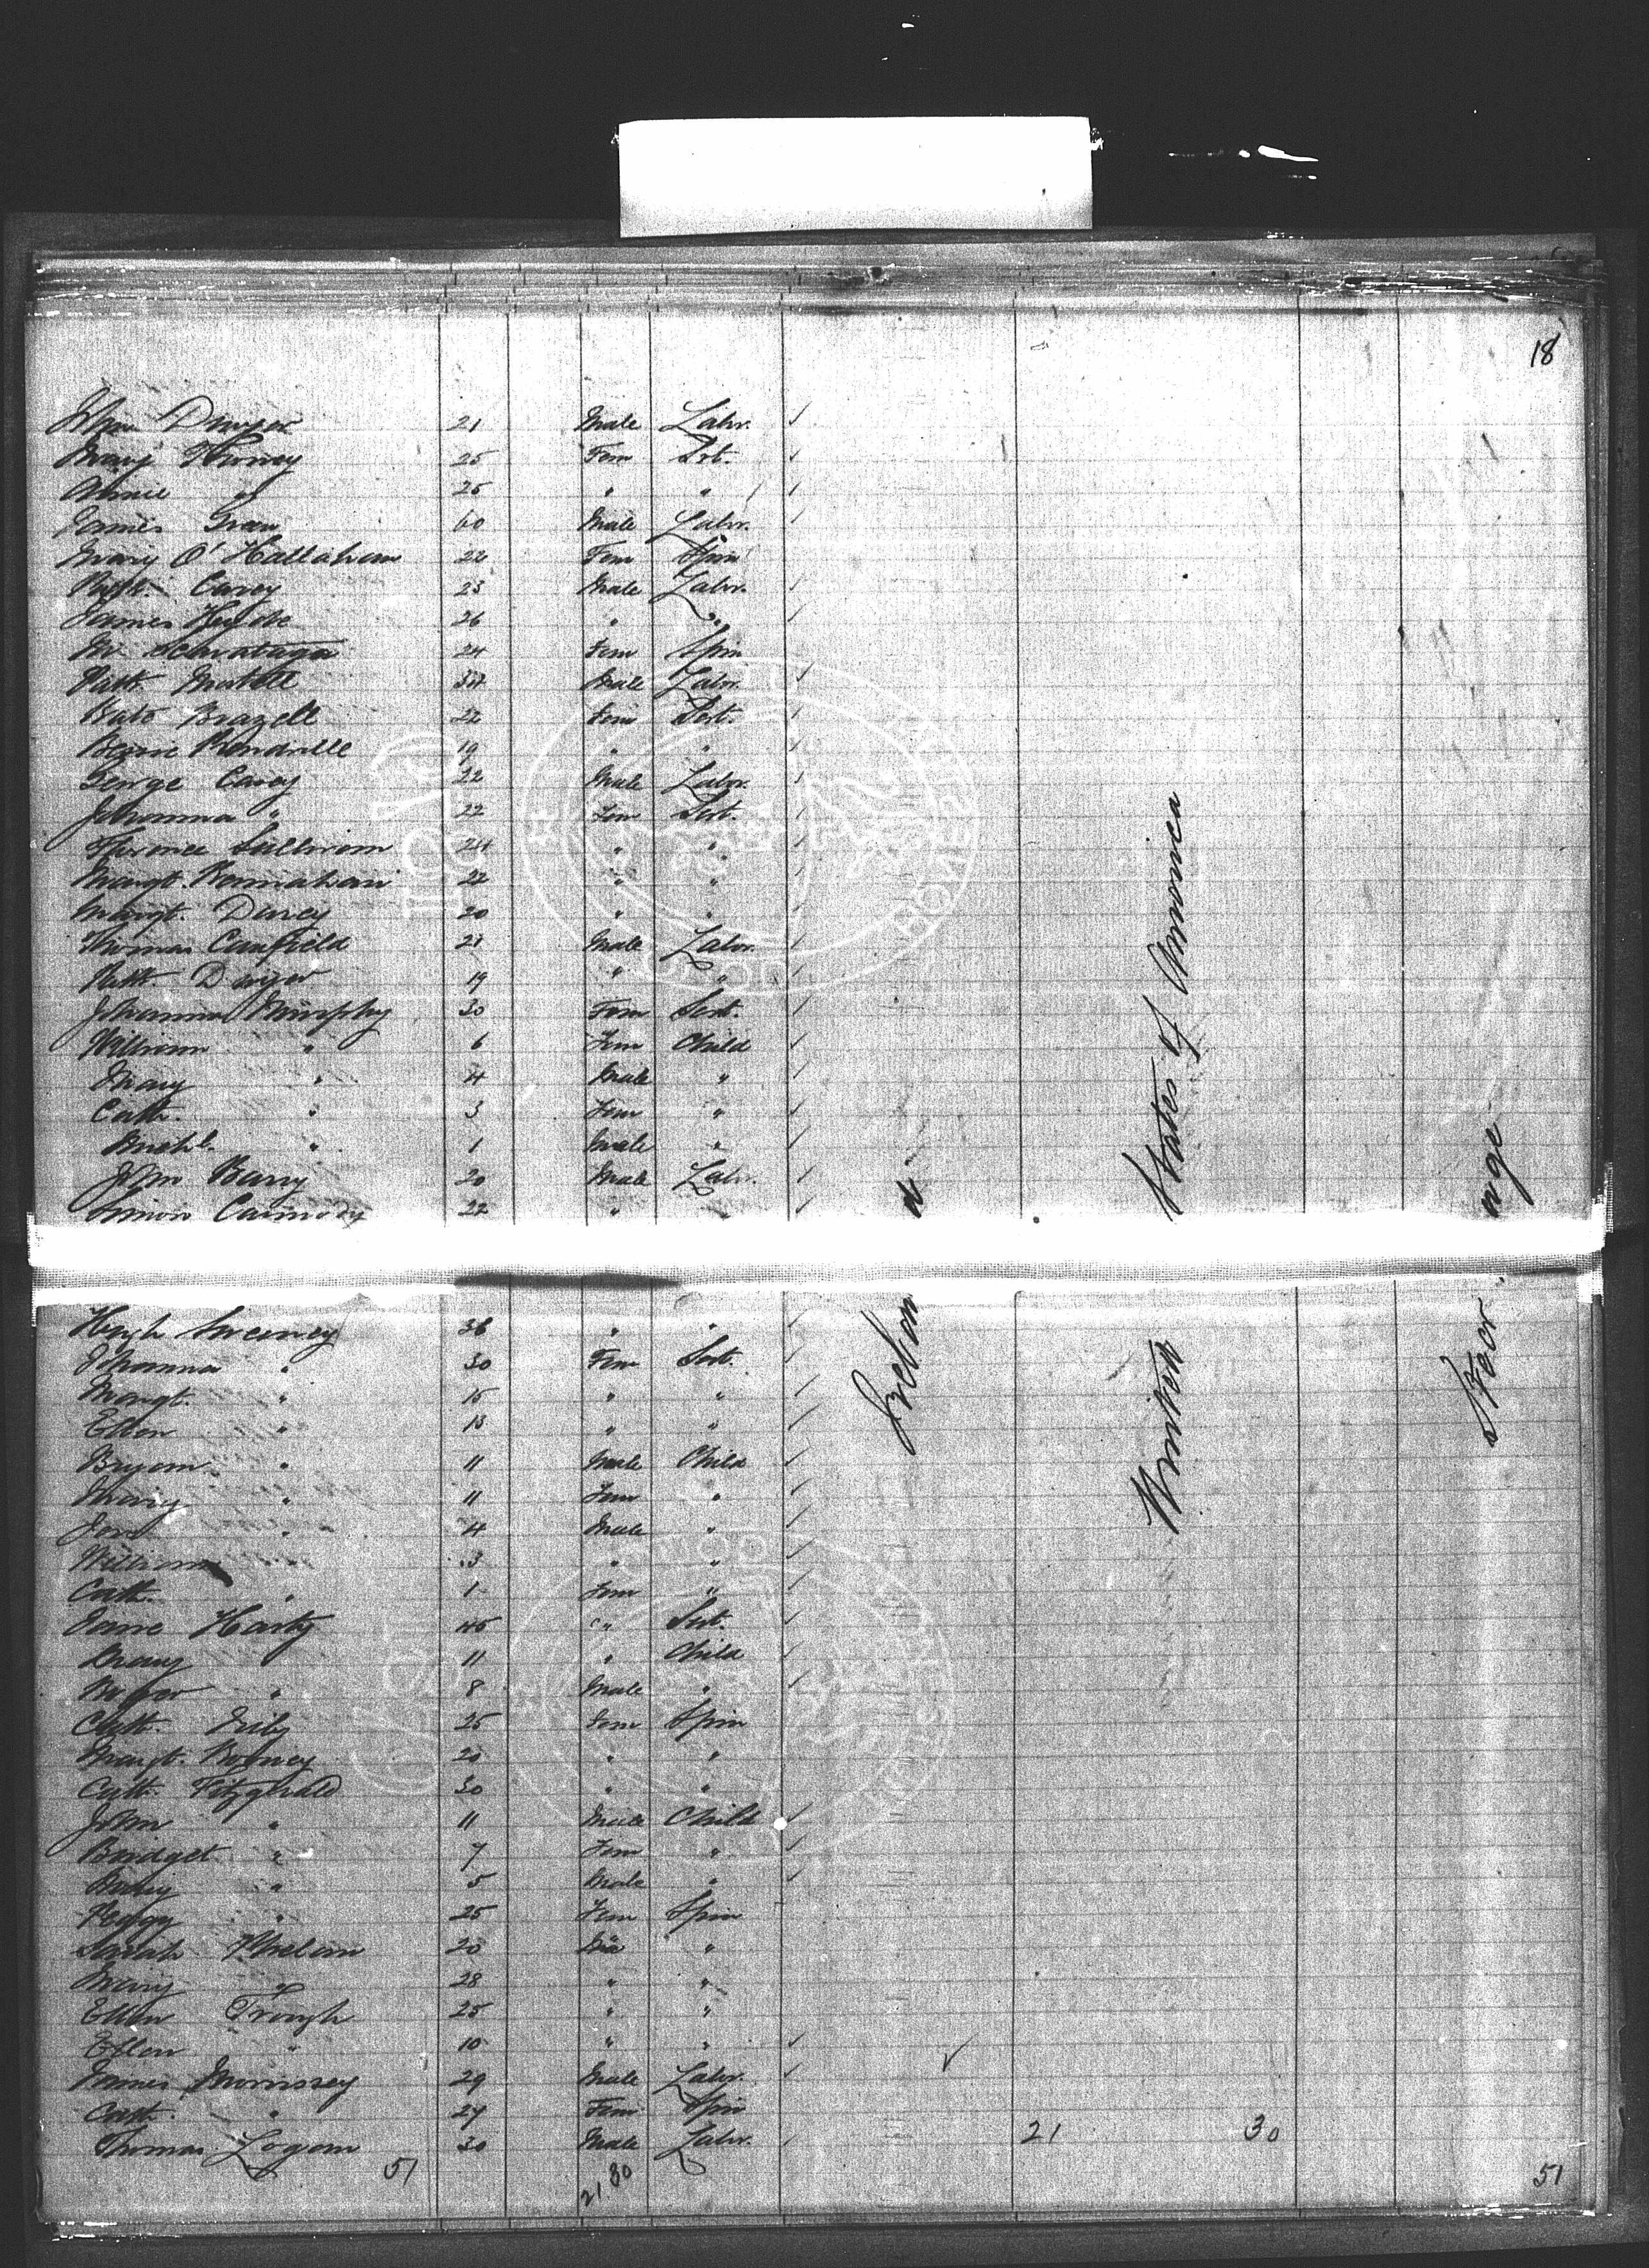 18
John Dwyer 21 Male Labr.
Mary 25 Fem Svt.
Annie " 25 " "
James Green 60 Male Labr.
Mary O'Hallahem 22 Fem Spin
Carey 23 Male Labr.
James Heyde 26 " "
24 Fem Spin
Patk. 34 Male Labr.
Kate Brazell 22 Fem Svt.
19 " "
George Carey 22 Male Labr.
Johanna " 22 Fem Svt.
Florence Sullivan 24 " "
Margt. 22 " "
Margt. Darcy 20 " "
Thomas Canfield 21 Male Labr.
Patk. Dwyer 19 " "
Johanna Murphy 30 Fem Svt.
William " 6 Fem Child
Mary " 4 Male "
Cath. " 3 Fem "
Michl. " 1 Male "
John Barry 20 Male Labr.
Simon Carmody 22 "
Hugh Sweeney 36 " "
Johanna " 30 Fem Svt.
Margt. " 15 " "
Ellen " 13 " "
Bryan " 11 Male Child
Mary " 11 Fem "
" 4 Male "
William 3 " "
Cath. " 1 Fem "
Jane Harty 45 " Svt.
Mary " 11 " Child
" 8 Male "
Cath. 25 Fem Spin
Margt. 20 " "
Cath. Fitzgerald 30 " "
John " 11 Male Child
Bridget " 7 Fem "
" 5 Male "
Peggy " 25 Fem Spin
Sarah Phelan 20 "
Mary " 28 " "
Ellen 25 " "
Ellen " 10 " "
James Morrissey 29 Male Labr.
Cath. " 27 Fem Spin
Thomas Logan 30 Male Labr.
51
21 30
21 30
51
Ireland
United States of America
Steerage